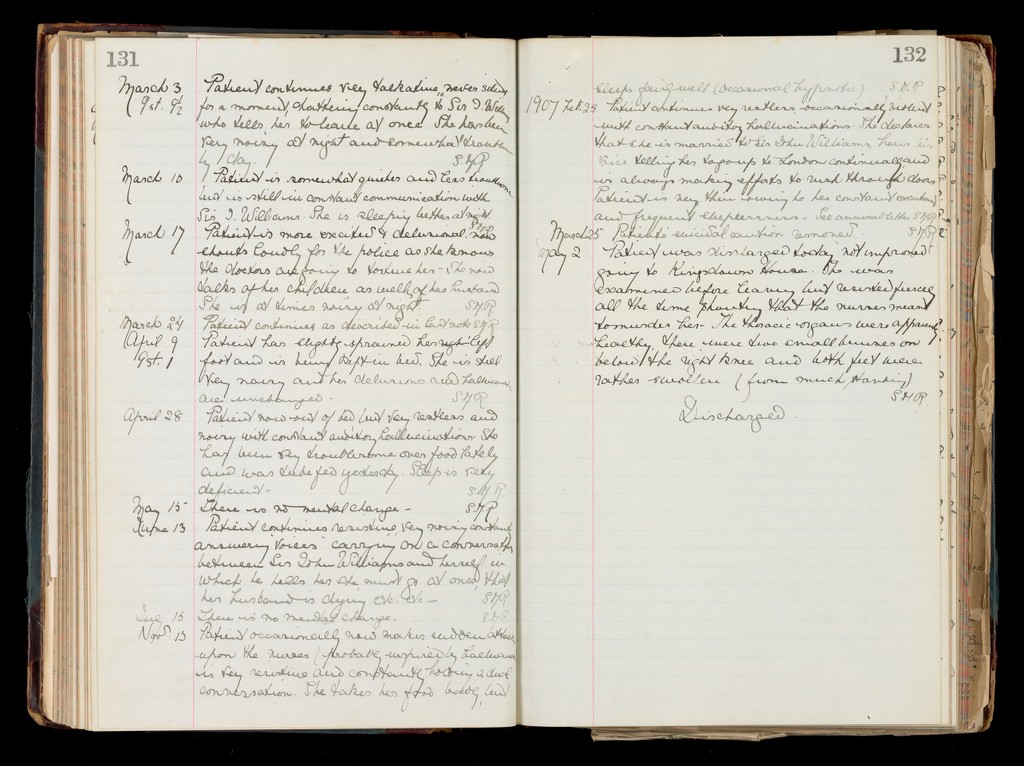 131
March 3 Patient continues very talkative, never silent
9st. 9½ for a moment, chattering constantly to Sir J. Willms
who tells her to leave at once. She has been
very noisy at night and somewhat troublesome
by day. SHR
March 10 Patient is somewhat quieter and less troublesome
but is still in constant communication with
Sir J. Williams. She is sleeping better at night. SHR
March 17 Patient is more excited & delusional. Now
shouts loudly for the police as she knows
the doctors are going to torture her - She now
talks of her children as well of her husband
She is at times noisy at night. SHR
March 24 Patient continues as described in last note SHR
April 9 Patient has slightly sprained her left
9st. 1 foot and is being kept in bed. She is still
very noisy and her delusions and hallucins
are unchanged - SHR
April 28 Patient now out of bed but very restless and
noisy with constant auditory hallucinations. She
has been very troublesome over food lately
and was tube fed yesterday. Sleep is very
deficient - SHR
May 15 There is no mental change - SHR
June 13 Patient continues resistive, very noisy constantly
answering "voices" carrying on a conversation
between Sir John Williams and herself in
which he tells her she must go at once, & that
her husband is dying etc. etc - SHR
15 There is no mental change. SHR
Novr. 13 Patient occasionally now makes sudden attacks
upon the nurses (probably inspired by hallucins
is very resistive and constantly holding a
conversation. She takes her food badly, but
132
sleeps fairly well (occasional hypnotic) SHR
1907 Feb. 25 Patient continues very restless - occasionally violent
with constant auditory hallucinations. She declares
that she is married to Sir John Williams, hears his
voice telling her to go up to London continually and
is always making efforts to rush through doors
Patient is very thin owing to her constant excitement
and frequent sleeplessness. See annexed letter SHR
March 25 Patient's suicidal caution removed. SHR
May 2 Patient was discharged today "not improved"
going to Kingsdown House. She was
examined before leaving but resisted fiercely
all the time shouting that the nurses meant
to murder her. The thoracic organs were apparently
healthy, there were two small bruises on
below the right knee and both feet were
rather swollen (from much standing)
SHR
Discharged.